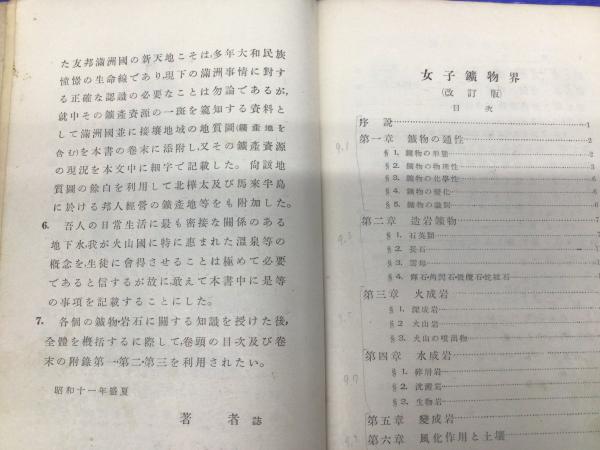 た友邦滿洲國の新天地こそは,多年大和民族
憧憬の生命線であり,現下の滿洲事情に對す
る正確な認識の必要なことは勿論であるが,
就中その鑛產資源の一斑を窺知する資料と
して滿洲國並に接壤地域の地質圖(鑛產地を
含む)を本書の卷末に添附し,又その鑛產資源
の現況を本文中に細字で記載した。尙該地
質圖の餘白を利用して北樺太及び馬來半島
に於ける邦人經營の鑛產地等をも附加した。
6. 吾人の日常生活に最も密接な關係のある
地下水,我が火山國に特に惠まれた溫泉等の
槪念を,生徒に會得させることは極めて必要
であると信ずるが故に,敢えて本書中に是等
の事項を記載することにした。
7. 各個の鑛物・岩石に關する知識を授けた後,
全體を槪括するに際して,卷頭の目次及び卷
末の附錄第一・第二・第三を利用されたい。
昭和十一年盛夏
著者誌
女子鑛物界
(改訂版)
目次
序說 1
第一章 鑛物の通性 2
§1. 鑛物の形態 2
§2. 鑛物の物理性 3
§3. 鑛物の化學性 4
§4. 鑛物の變化 6
§5. 鑛物の識別 6
第二章 造岩鑛物 7
§1. 石英類 7
§2. 長石
§3. 雲母
§4. 輝石・角閃石・橄欖石・蛇紋石
第三章 火成岩
§1. 深成岩
§2. 火山岩
§3. 火山の噴出物
第四章 水成岩
§1. 碎屑岩
§2. 沈澱岩
§3. 生物岩
第五章 變成岩
第六章 風化作用と土壤